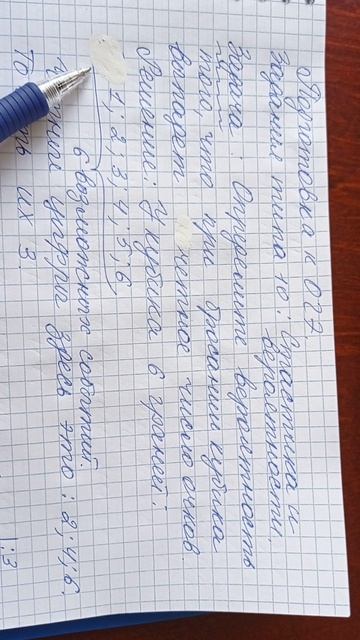 Подготовка к ОГЭ.
Задание типа 10: Статистика и
вероятности.
Задача: Определите вероятность
того, что при бросании кубика
выпадет чётное число очков.
Решение: У кубика 6 граней:
1; 2; 3; 4; 5; 6
6 возможных событий.
цифры здесь это: 2; 4; 6.
их 3.